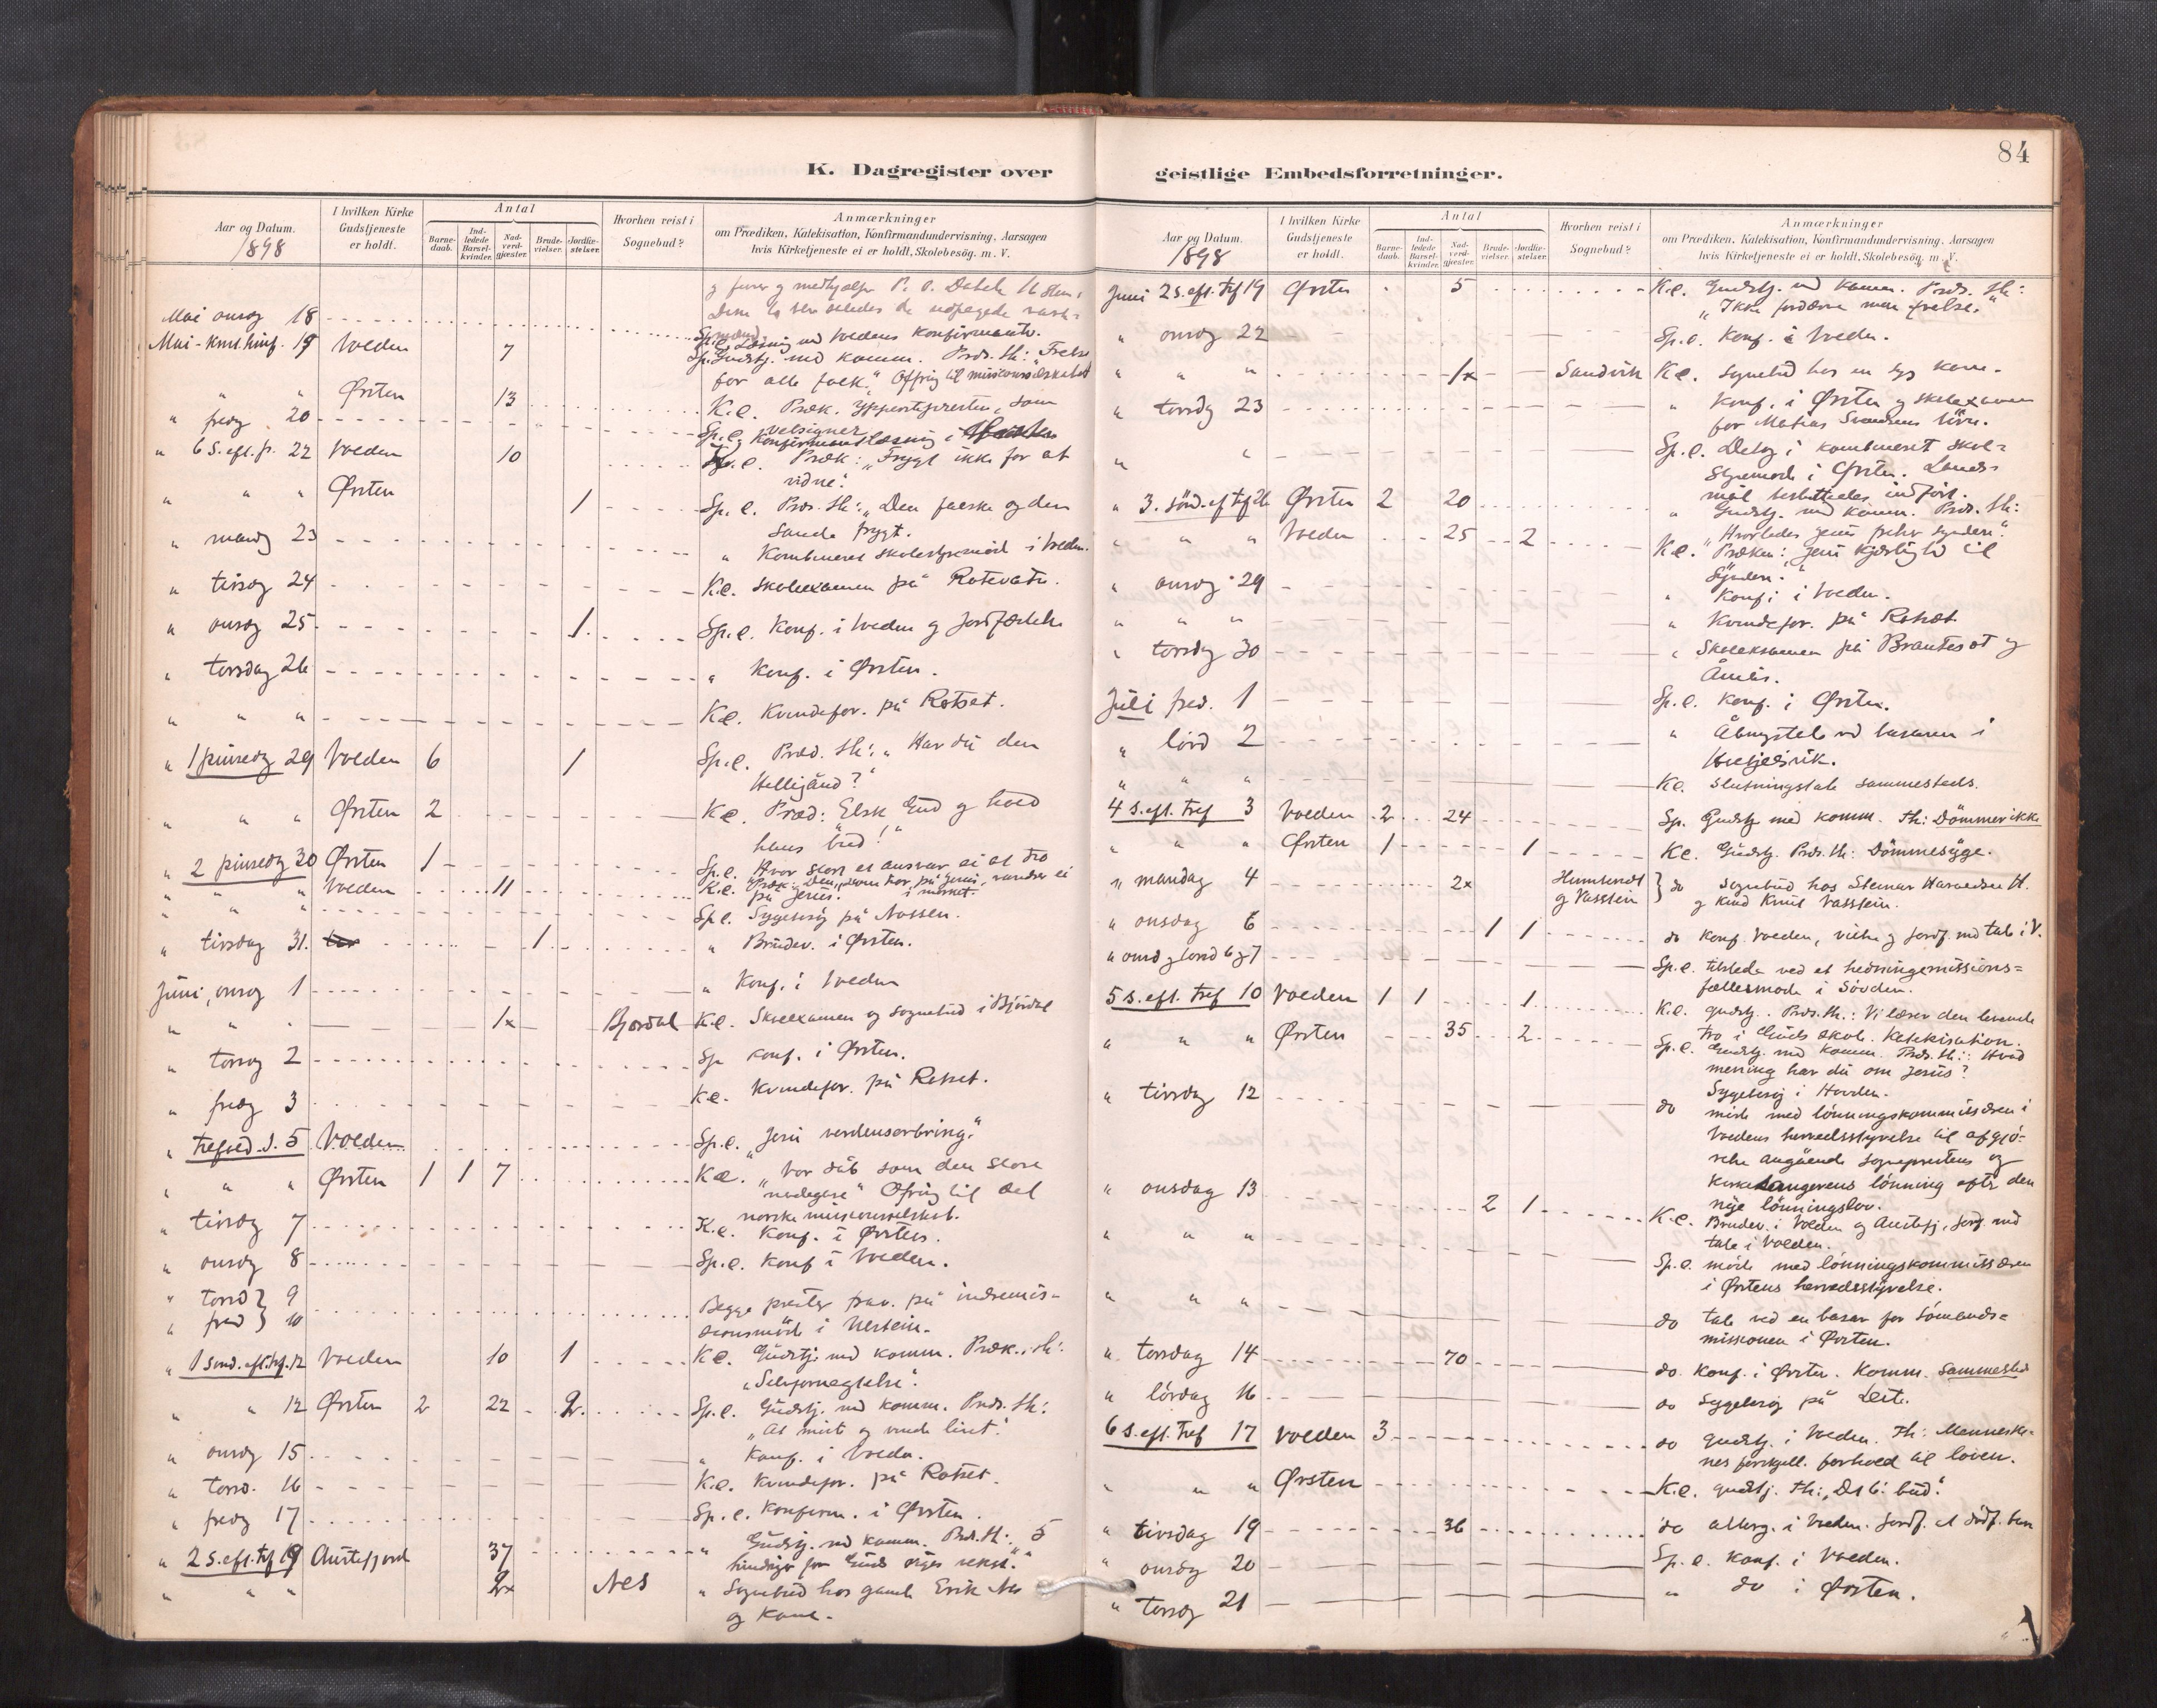 84
K. Dagregister over geistlige Embedsforretninger.
Aar og Datum. 1898
I hvilken Kirke Gudstjeneste er holdt.
Antal
Barne-daab. Ind-ledede Barsel-kvinder. Nad-verd-gjæster. Brude-vielser. Jordfæ-stelser.
Hvorhen reist i Sognebud?
Anmærkninger
om Prædiken, Katekisation, Konfirmandundervisning, Aarsagen
hvis Kirketjeneste ei er holdt, Skolebesög. m. V.
Mai onsdg 18 Læsning med Voldens konfirmanter.
Mai - Krist. himf. 19 Volden 7 Sp. Gudstj. med komm. Præd. th: "Frelse
for alle folk." Offring til missionsselskabet
" " Örsten 13 K.c. Præk. Ypperstepresten, som
velsigner
" fredg 20 Sp. c. Konfirmantlæsning i
" 6 S. eft. p. 22 Volden 10 Præk: "Frygt ikke for at
vidne."
" " " Örsten 1 Sp. c. Præd. th: "Den falske og den
sande frygt.
" mandg 23 " Kombineret skolestyremöde i Volden.
" tirsdg 24 K.c. skoleexamen på Rotevatn.
" onsdg 25 1 Sp. c. Konf. i Volden og Jordfæstelse
" torsdag 26 " Konf. i Örsten.
" " " K.c. Kvindefor. på Rotset.
" 1 pinsedg 29 Volden 6 1 Sp. c. Præd. th: "Har du den
Helligånd?"
" " " Örsten 2 K.c. Præd: "Elsk Gud og hold
hans bud!"
" 2 pinsedg 30 Örsten 1 Sp. c. Hvor stort et ansvar ei at tro
på Jesus.
" " " Volden 11 K.c. Præk: Den, som tror på Jesus, vandrer ei
i mörket.
" " " Sp. c. Sygebesög på Nossen.
" tirsdag 31. 1 " Brudev. i Örsten.
Juni, onsdg 1 " Konf. i Volden
" " " 1x Bjordal K.c. Skoleexamen og sognebud i Bjordal
" torsdg 2 Sp Konf. i Örsten.
K.c. Kvindefor. på Rotset.
" fredg 3
" Trefold. S. 5 Volden Sp. c. "Jesu verdenserobring."
" " " Örsten 1 1 7 K.c. "Vor dåb som den store
Ofring til det
norske missionsselskab.
" tirsdg 7 K.c. Konf. i Örsten.
" onsdg 8 Sp. c. Konf i Volden.
" torsd } 9
" fred } 10 Begge prester frav. på indremis-
sionsmöde i Ulstein.
" 1 Sönd. eft. tref. 12 Volden 10 1 K.c. Gudstj. med komm. Præk. th:
"Selvfornegtelse".
" " 12 Örsten 2 22 2. Sp. c. Gudstj. med komm. Præd. th:
"At miste og vinde livet."
" onsdg 15 " Konf. i Volden.
" torsd. 16 K.c. Kvindefor. på Rotset.
" fredg 17 Sp. c. Konfirm. i Örsten.
" 2 S. eft. tref 19 Austefjord 37 " Gudstj. med komm. Præd. th: "5
hindringer for Guds riges vekst."
" " " 2x Nes " Sognebud hos gamle Erik Nes
og kone.
Aar og Datum. 1898
I hvilken Kirke Gudstjeneste er holdt.
Antal
Barne-daab. Ind-ledede Barsel-kvinder. Nad-verd-gjæster. Brude-vielser. Jordfæ-stelser.
Hvorhen reist i Sognebud?
Anmærkninger
om Prædiken, Katekisation, Konfirmandundervisning, Aarsagen
hvis Kirketjeneste ei er holdt, Skolebesög. m. V.
Juni 2 S. eft. tref 19 Örsten 5 K.c. Gudstj. med komm. Præd. th:
"Ikke fordærve men frelse."
" onsdg 22 Sp. c. Konf. i Volden.
" " " 1x Sandvik K.c. Sognebud hos en syg kone.
" torsdg 23 " Konf. i Örsten og skolexamen
for
Sp. c. Deltog i kombineret skole-
styremöde i Örsten. Lands-
mål besluttedes indfört.
" 3. sönd. eft tref 26 Örsten 2 20 " Gudstj. med komm. Præd. th:
"Hvorledes Jesus söker synderen".
" " " Volden 25 2 K.c. Præken: "Jesu kjærlighed til
Synderen."
" onsdg 29 " Konf. i Volden.
" " " " Kvindefor. på Rotset.
" torsdg 30 " Skoleksamen på Brautesæt og
Åmås.
Juli fred. 1 Sp. c. Konf. i Örsten.
" lörd 2 " Åbningstale ved basaren i
" " " K.c. Slutningstale sammesteds.
4 s. eft. tref 3 Volden 2 24 Sp. Gudstj med komm. Th: Dömmer ikke
" " " Örsten 1 1 K.c. Gudstj. Præd. th: Dömmesyge.
" mandag 4 2x Humberset og Vassbein } do Sognebud hos Steinar Haraldsen H.
og kone Knut Vassbein.
" onsdag 6 1 1 do Konf. Volden, vielse og jordf. med tale i V.
" onsd og torsd 6 og 7 Sp. c. tilstede ved et hedningemissions-
fællesmöde i Sövden.
5 s. eft. tref 10 Volden 1 1 1 K.c. Gudstj. Præd. th.: Vi lærer den levende
tro i Guds skole. Katekisation.
" " " Örsten 35 2 Sp. c. Gudstj. med komm. Præd. th: Hvad
mening har du om Jesus?
" tirsdag 12 Sygebesög i Hovden.
do möde med lönningskommissæren i
Voldens herredsstyrelse til afgjö-
relse angående sogneprestens og
kirkesangerens lönning efter den
nye lönningslov.
" onsdag 13 2 1 K.c. Brudev. i Volden og Austefj., jordf. med
tale i Volden.
" " " Sp. c. möde med lönningskommissæren
i Örstens herredsstyrelse.
" " " do tale ved en basar for Sömands-
missionen i Örsten.
" torsdag 14 70 do. Konf. i Örsten. Komm. sammested
" lördag 16 do Sygebesög på Leite.
6 s. eft. tref 17 Volden 3 do Gudstj. i Volden. Th: Menneske-
nes forskjell. forhold til loven.
" " " Örsten K.c. Gudstj. Th: "Det 6. bud."
" tirsdag 19 36 do alterg. i Volden. Jordf. et dödf. barn
" onsdg 20 Sp. c. Konf. i Volden.
" torsdg 21 " do i Örsten.